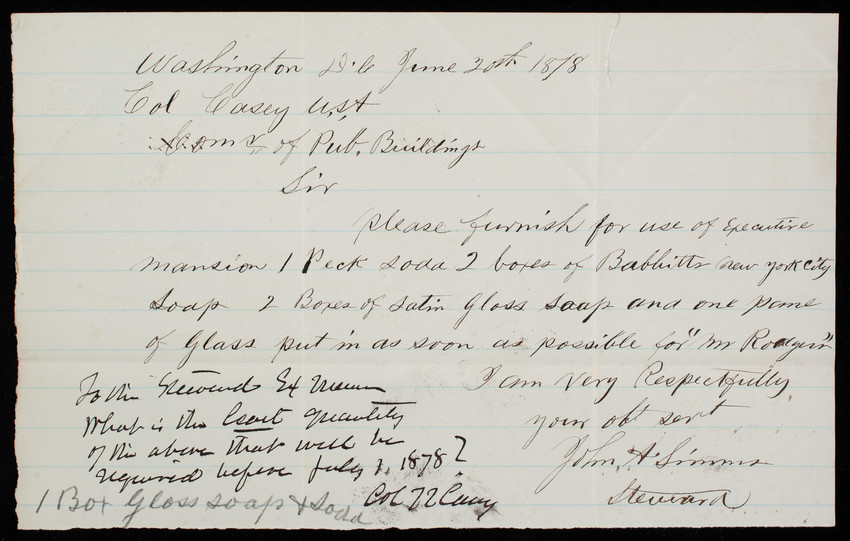 Washington D.C June 20th 1878
Col Casey U.S.A
Comr of Pub. Buildings
Sir
please furnish for use of Executive
mansion 1 Peck soda 2 boxes of Babbitts new york City
Soap 2 Boxes of Satin Gloss soap and one pane
of Glass put in as soon as possible for "Mr Rodgers"
I am very Respectfully
your obt servt
John A Simms
Steward
To the Steward Ex
What is the least quantity
of the above that will be
required before July 1, 1878?
Col Casey
1 Box Gloss soap & Soda